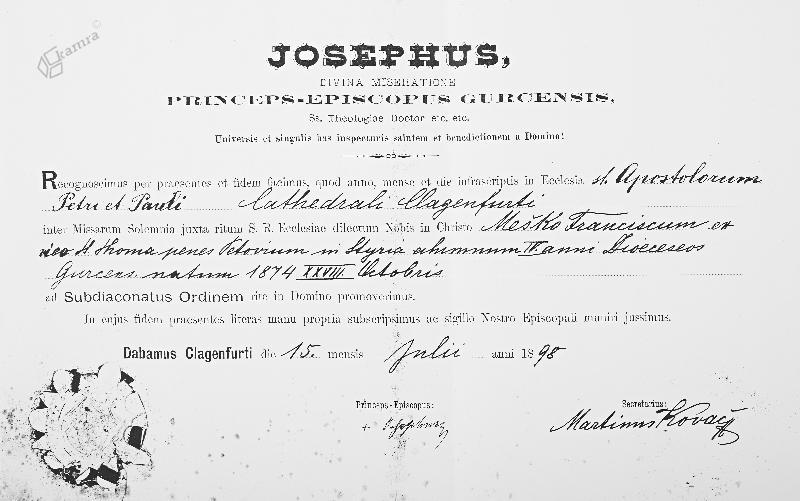 kamra
JOSEPHUS,
DIVINA MISERATIONE
PRINCEPS-EPISCOPUS GURCENSIS,
Ss. Theologiae Doctor etc. etc.
Universis et singulis has inspecturis salutem et benedictionem a Domino!
Recognoscimus per praesentes et fidem facimus, quod anno, mense et die infrascriptis in Ecclesia st. Apostolorum
Petri et Pauli Cathedrali Clagenfurti
inter Missarum Solemnia juxta ritum S. R. Ecclesiae dilectum Nobis in Christo Meško Franciscum ex
vico St. Thoma penes Petovium in Styria alumnum IV anni Dioeceseos
Gurcens natum 1874 XXVIII Octobris
ad Subdiaconatus Ordinem rite in Domino promoverimus.
In cujus fidem praesentes literas manu propria subscripsimus ac sigillo Nostro Episcopali muniri jussimus.
Dabamus Clagenfurti die 15. mensis Julii anni 1898
Princeps-Episcopus:
Secretarius:
Martinus Kovač